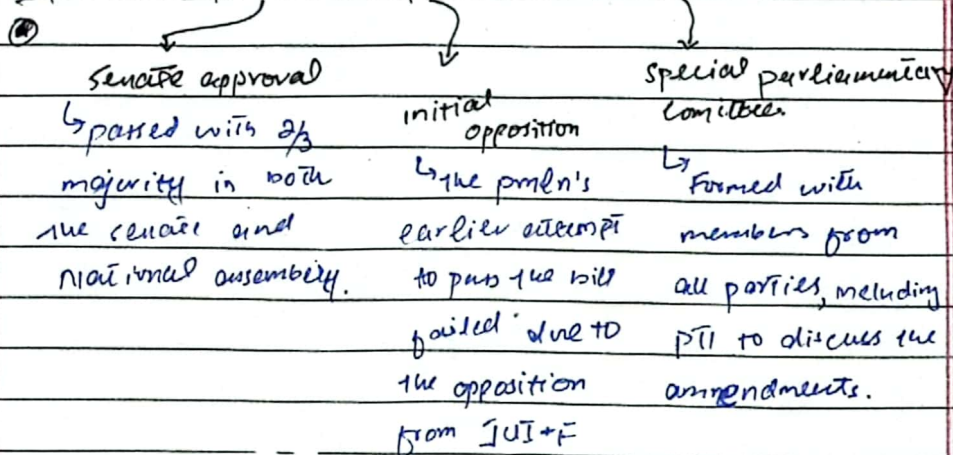 Senate approval
↳ passed with 2/3
majority in both
the senate and
National assembly.
initial
opposition
↳ the pmln's
earlier attempt
to pass the bill
failed due to
the opposition
from JUI+F
special parliamentary
Comittee.
↳ Formed with
members from
all parties, including
PTI to discuss the
ammendments.